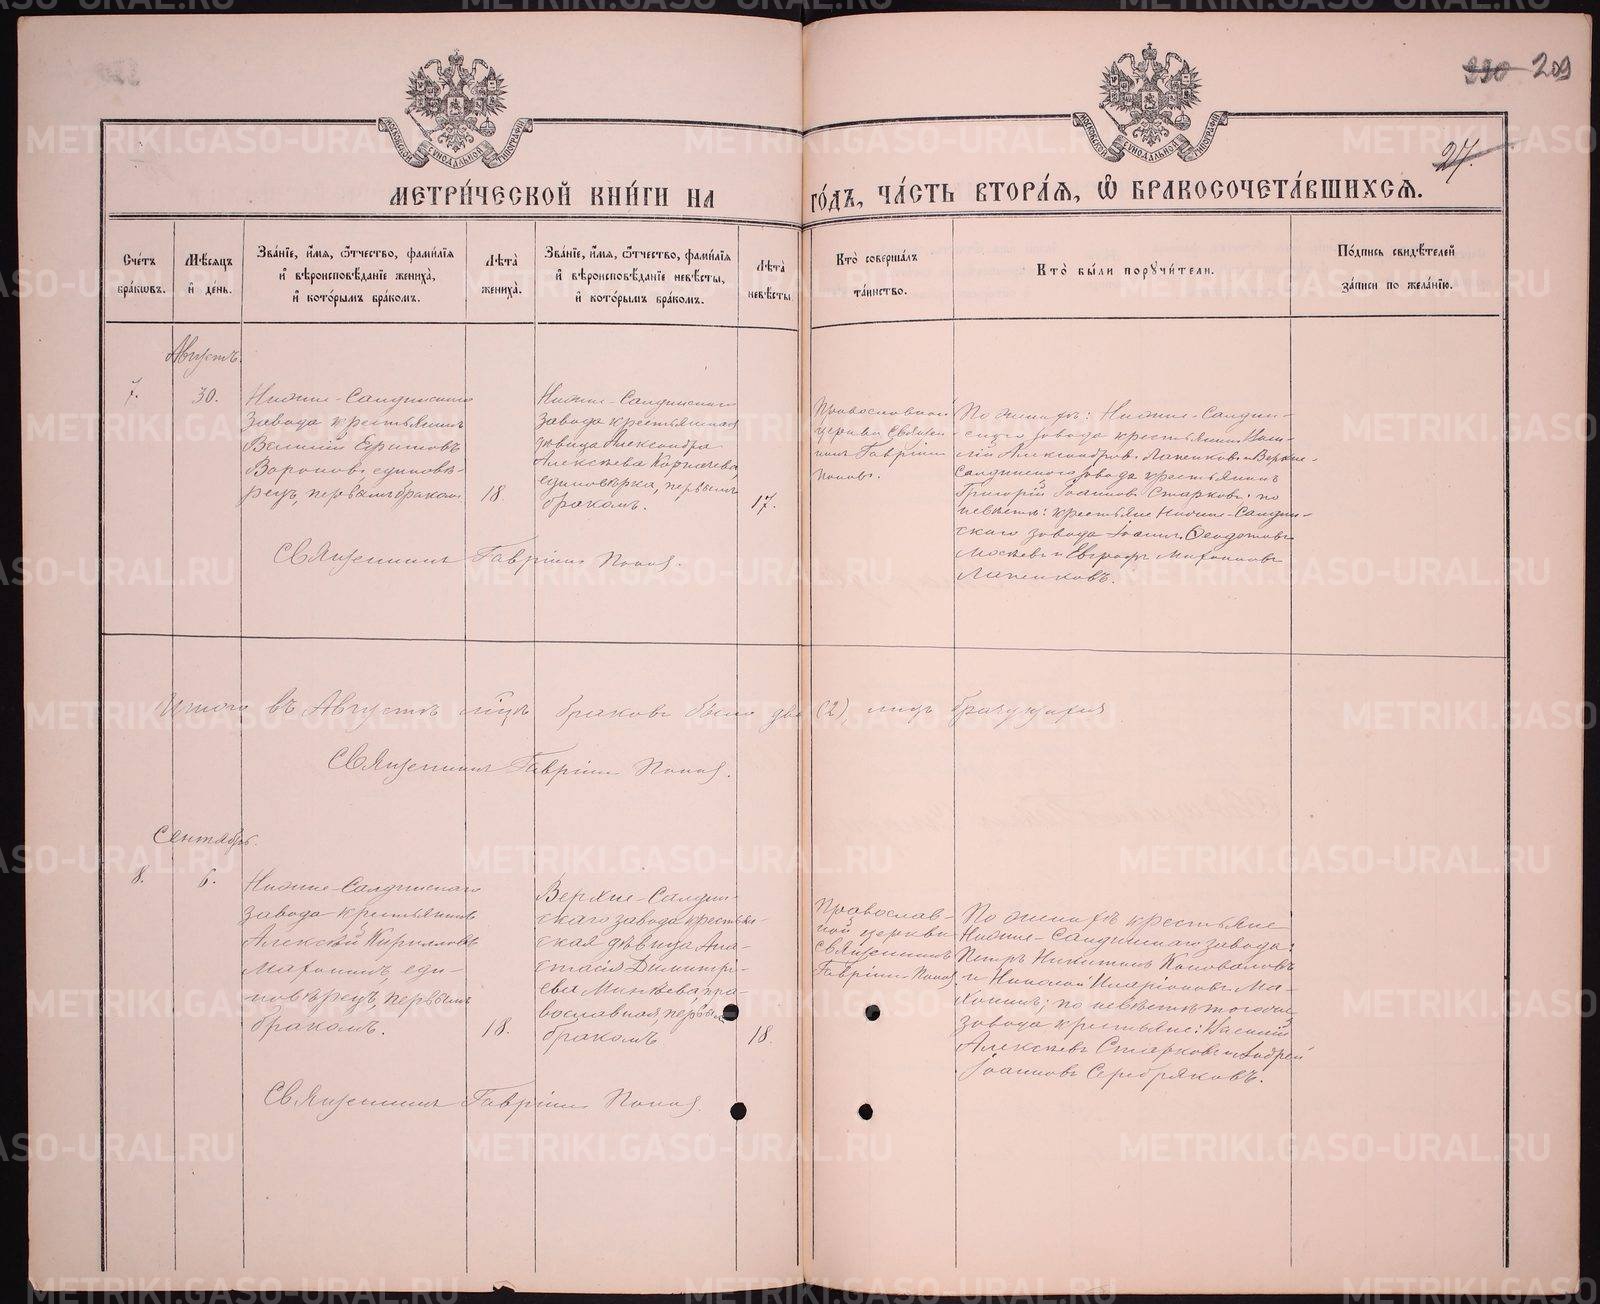 330 209
27.
МОСКОВСКОЙ СѴНОДАЛЬНОЙ ТИПОГРАФІИ
МОСКОВСКОЙ СѴНОДАЛЬНОЙ ТИПОГРАФІИ
МЕТРИ́ЧЕСКОЙ КНИ́ГИ НА ГО́ДЪ, ЧА́СТЬ ВТОРА́Я, Ѽ БРАКОСОЧЕТА́ВШИХСЯ.
Сче́тъ бра́кѡвъ.
Мѣ́сяцъ и҆ де́нь.
Зва́нїе, и҆́мя, ѻ҆́тчество, фами́лїя и҆ вѣроисповѣ́данїе жениха̀, и҆ кото́рымъ бра́комъ.
Лѣта̀ жениха̀.
Зва́нїе, и҆́мя, ѻ҆́тчество, фами́лїя и҆ вѣроисповѣ́данїе невѣ́сты, и҆ кото́рымъ бра́комъ.
Лѣта̀ невѣ́сты
Кто̀ соверша́лъ та́инство.
Кто̀ бы́ли порꙋчи́тели.
По́дпись свидѣ́телей за́писи по жела́нїю.
Августъ.
7.
30.
Нижне-Салдинскаго
завода крестьянинъ
Василій Ефимовъ
Вороновъ, единовѣ-
рецъ, первымъ бракомъ
18.
Нижне-Салдинскаго
завода крестьянская
дѣвица Александра
Алексѣева
единовѣрка, первымъ
бракомъ.
17.
Православной
церкви Священ
никъ Гавріилъ
Поповъ.
По женихѣ: Нижне-Салдин-
скаго завода крестьянинъ Васи-
лій Александровъ Лапенковъ и Верхне-
Салдинскаго завода крестьянинъ
Григорій Іоанновъ Старковъ; по
невѣстѣ: крестьяне Нижне-Салдин-
скаго завода Іоаннъ Ѳеодотовъ
и Евграфъ
Лапенковъ.
Священникъ Гавріилъ Поповъ.
Итого въ Августѣ м҃цѣ браковъ было два (2), лицъ
Священникъ Гавріилъ Поповъ.
Сентябрь.
8.
6.
Нижне-Салдинскаго
завода крестьянинъ
Алексѣй Кирилловъ
Махонинъ, еди-
новѣрецъ, первымъ
бракомъ.
18.
Верхне-Салдин-
скаго завода крестьян-
ская дѣвица Ана-
стасія Димитрі-
ева Минѣева, пра-
вославная, первымъ
бракомъ
18.
Православ-
ной церкви
Священникъ
Гавріилъ Поповъ
По женихѣ крестьяне
Нижне-Салдинскаго завода:
Петръ Никитинъ Коноваловъ
и Николай Иларіоновъ Ма-
хонинъ; по невѣстѣ тогоже
завода крестьяне: Василій
Алексѣевъ Старковъ и Андрей
Іоанновъ Серебряковъ.
Священникъ Гавріилъ Поповъ.